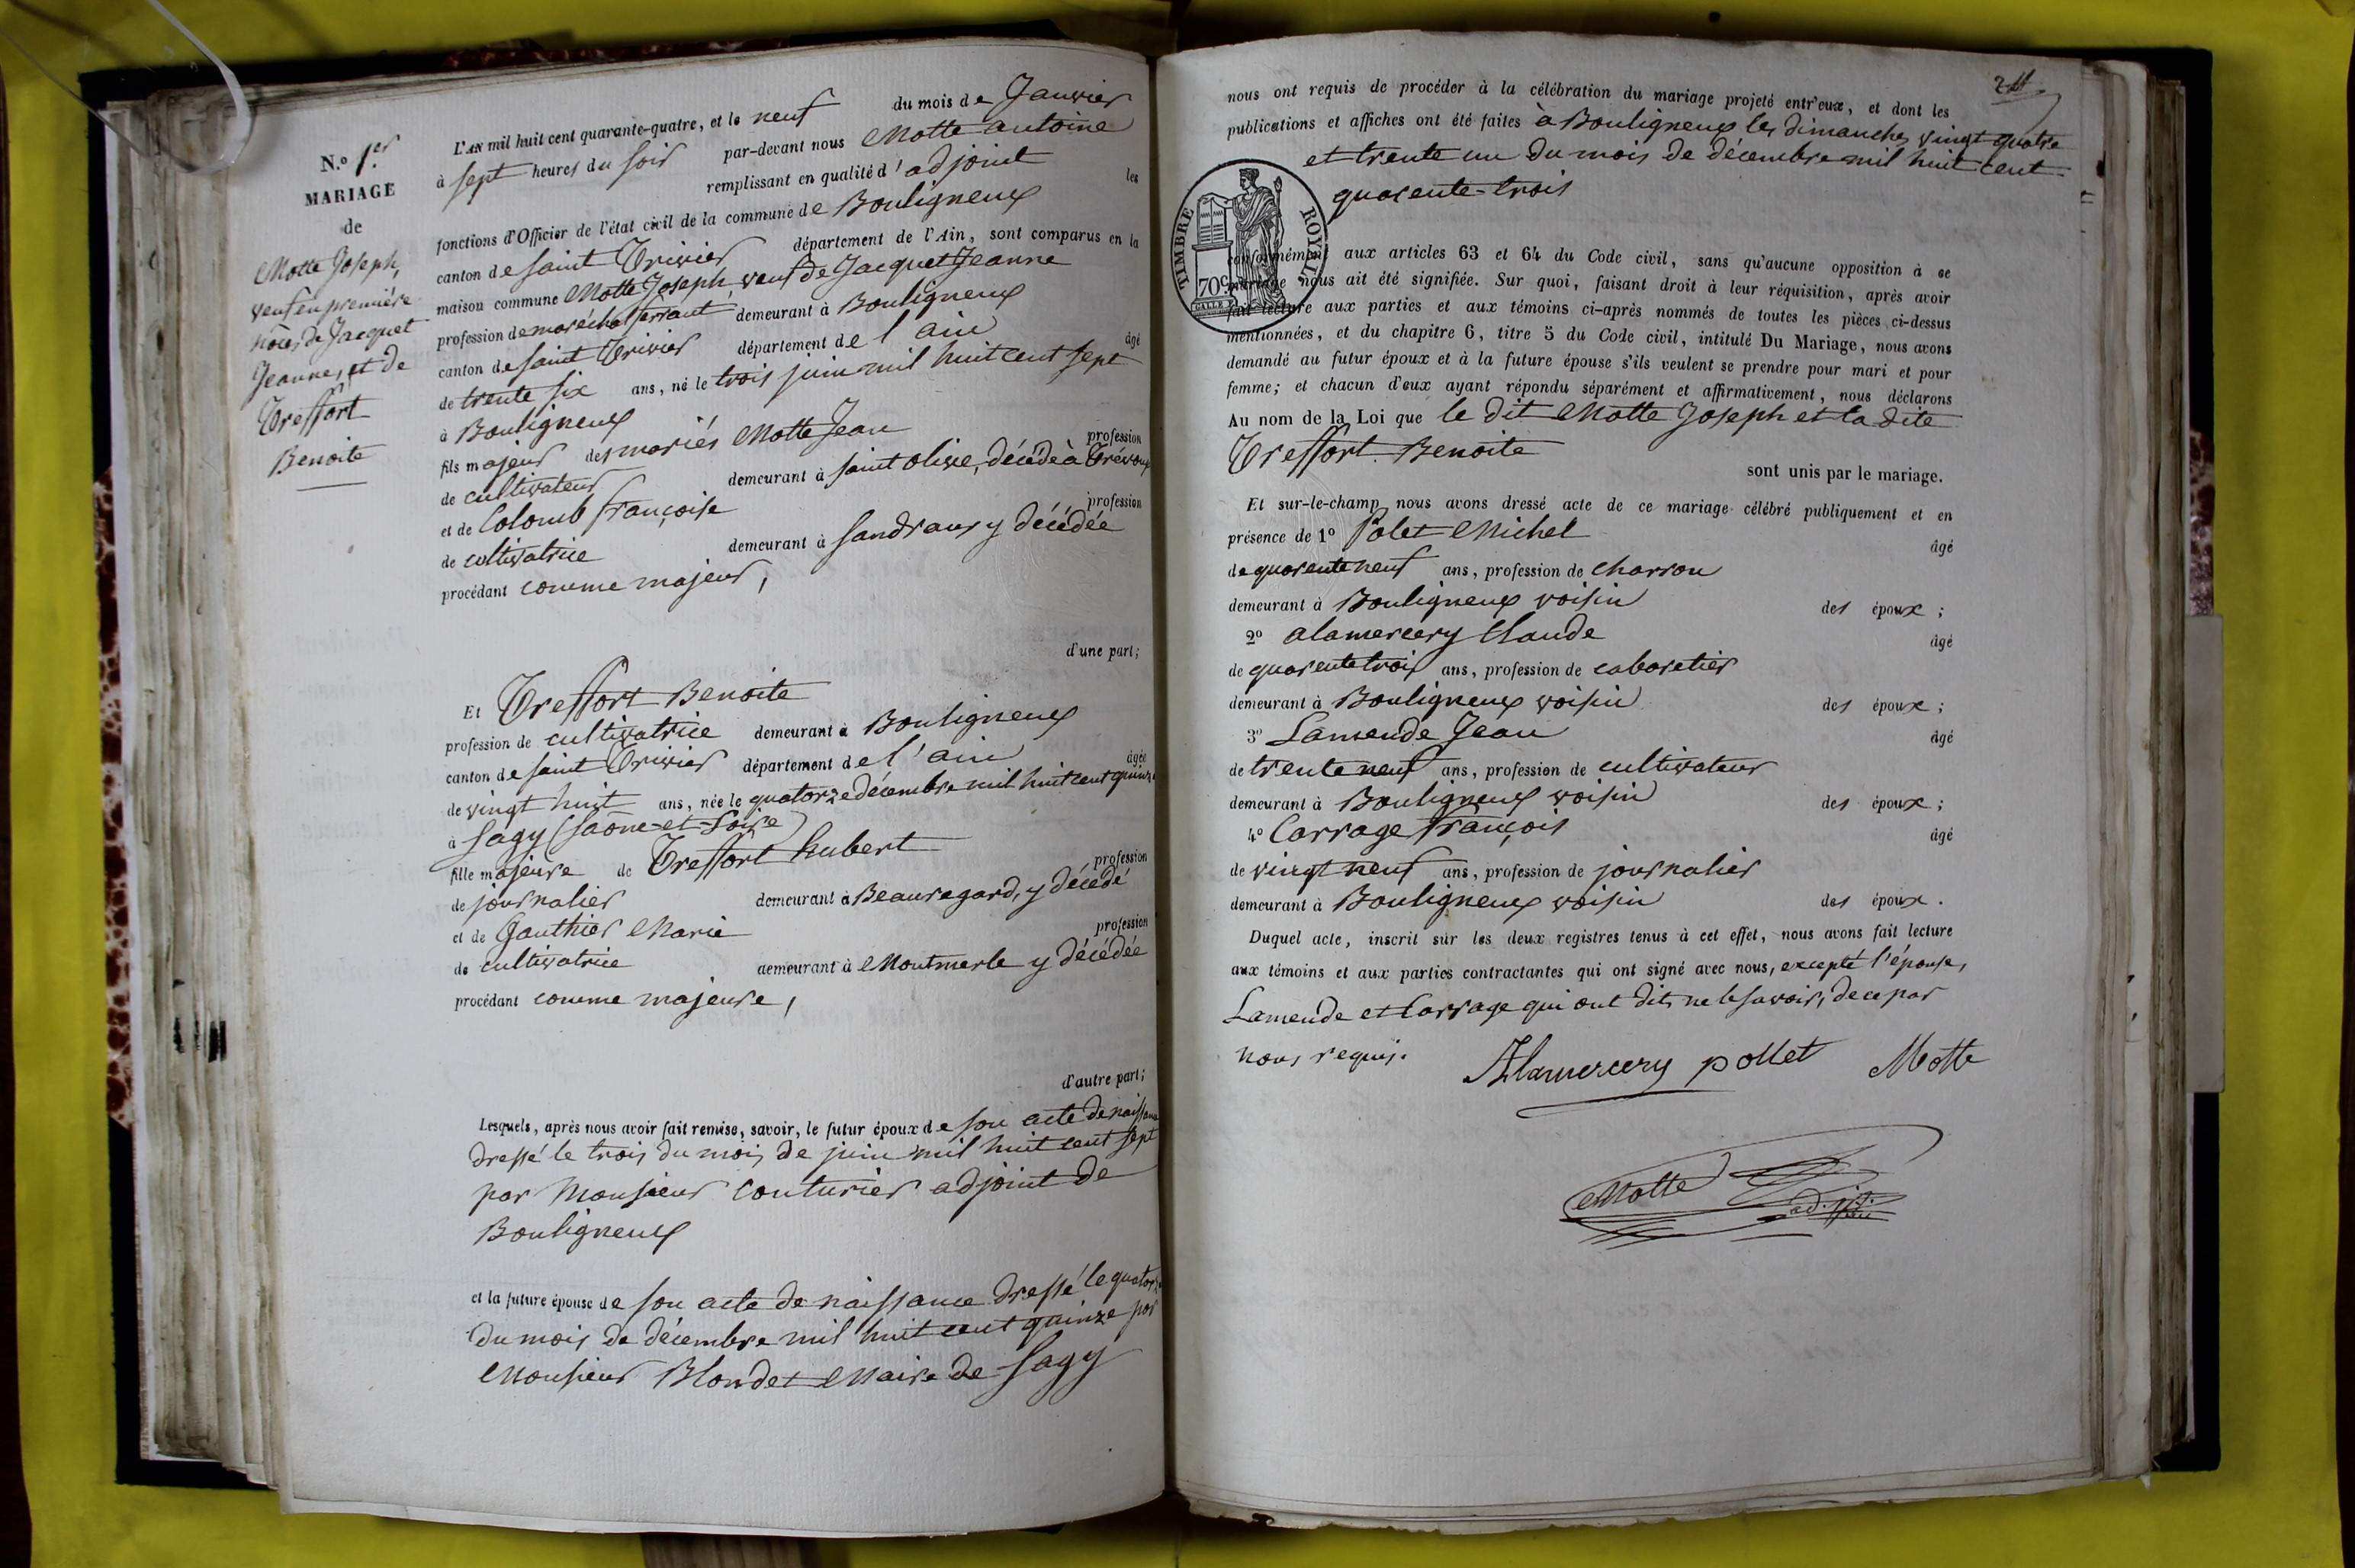 N.o 1.er
MARIAGE
de
Motte Joseph,
veuf en première
nôces de Jacquet
Jeanne, et de
Treffort
Benoite
L'AN mil huit cent quarante-quatre, et le neuf du mois de Janvier
à sept heures du soir par-devant nous Motte antoine
remplissant en qualité d'adjoint les
fonctions d'Officier de l'état civil de la commune de Bouligneux
canton de saint Trivier département de l'Ain, sont comparus en la
maison commune Motte Joseph, veuf de Jacquet Jeanne
profession de maréchal ferrant demeurant à Bouligneux
canton de saint Trivier département de l'ain âgé
de trente six ans, né le trois juin mil huit cent sept
à Bouligneux
fils majeur des mariés Motte Jean profession
de cultivateur demeurant à saint olive, décédé à Trévoux
et de Colomb françoise profession
de cultivatrice demeurant à sandrans y décédée
procédant comme majeur,
d'une part;
Et Treffort Benoite
profession de cultivatrice demeurant à Bouligneux
canton de saint Trivier département de l'ain âgée
de vingt huit ans, née le quatorze décembre mil huit cent quinze
à Sagy (Saône-et-Loire)
fille majeure de Treffort hubert profession
de journalier demeurant à Beauregard, y décédé
et de Gauthier Marie profession
de cultivatrice demeurant à Montmerle y décédée
procédant comme majeure,
d'autre part;
Lesquels, après nous avoir fait remise, savoir, le futur époux de son acte de naissance
dressé le trois du mois de juin mil huit cent sept
par Monsieur Couturier adjoint de
Bouligneux
et la future épouse de son acte de naissance dressé le quatorze
du mois de décembre mil huit cent quinze par
Monsieur Blondet Maire de Sagy
nous ont requis de procéder à la célébration du mariage projeté entr'eux, et dont les
publications et affiches ont été faites à Bouligneux les dimanches vingt quatre
et trente un du mois de décembre mil huit cent
quarente-trois
TIMBRE ROYAL
70c
conformément aux articles 63 et 64 du Code civil, sans qu'aucune opposition à ce
mariage nous ait été signifiée. Sur quoi, faisant droit à leur réquisition, après avoir
fait lecture aux parties et aux témoins ci-après nommés de toutes les pièces ci-dessus
mentionnées, et du chapitre 6, titre 5 du Code civil, intitulé Du Mariage, nous avons
demandé au futur époux et à la future épouse s'ils veulent se prendre pour mari et pour
femme; et chacun d'eux ayant répondu séparément et affirmativement, nous déclarons
Au nom de la Loi que le dit Motte Joseph et la dite
Treffort Benoite
sont unis par le mariage.
Et sur-le-champ nous avons dressé acte de ce mariage célébré publiquement et en
présence de 1o Polet Michel âgé
de quarente neuf ans, profession de charron
demeurant à Bouligneux voisin des époux;
2o alamercery Claude âgé
de quarente trois ans, profession de cabaretier
demeurant à Bouligneux voisin des époux;
3o Lamende Jean âgé
de trente neuf ans, profession de cultivateur
demeurant à Bouligneux voisin des époux;
4o Carrage françois âgé
de vingt neuf ans, profession de journalier
demeurant à Bouligneux voisin des époux.
Duquel acte, inscrit sur les deux registres tenus à cet effet, nous avons fait lecture
aux témoins et aux parties contractantes qui ont signé avec nous, excepté l'épouse,
Lamende et Carrage qui ont dit, ne le savoir, de ce par
nous requis.
Alamercery pollet Motte
Motte